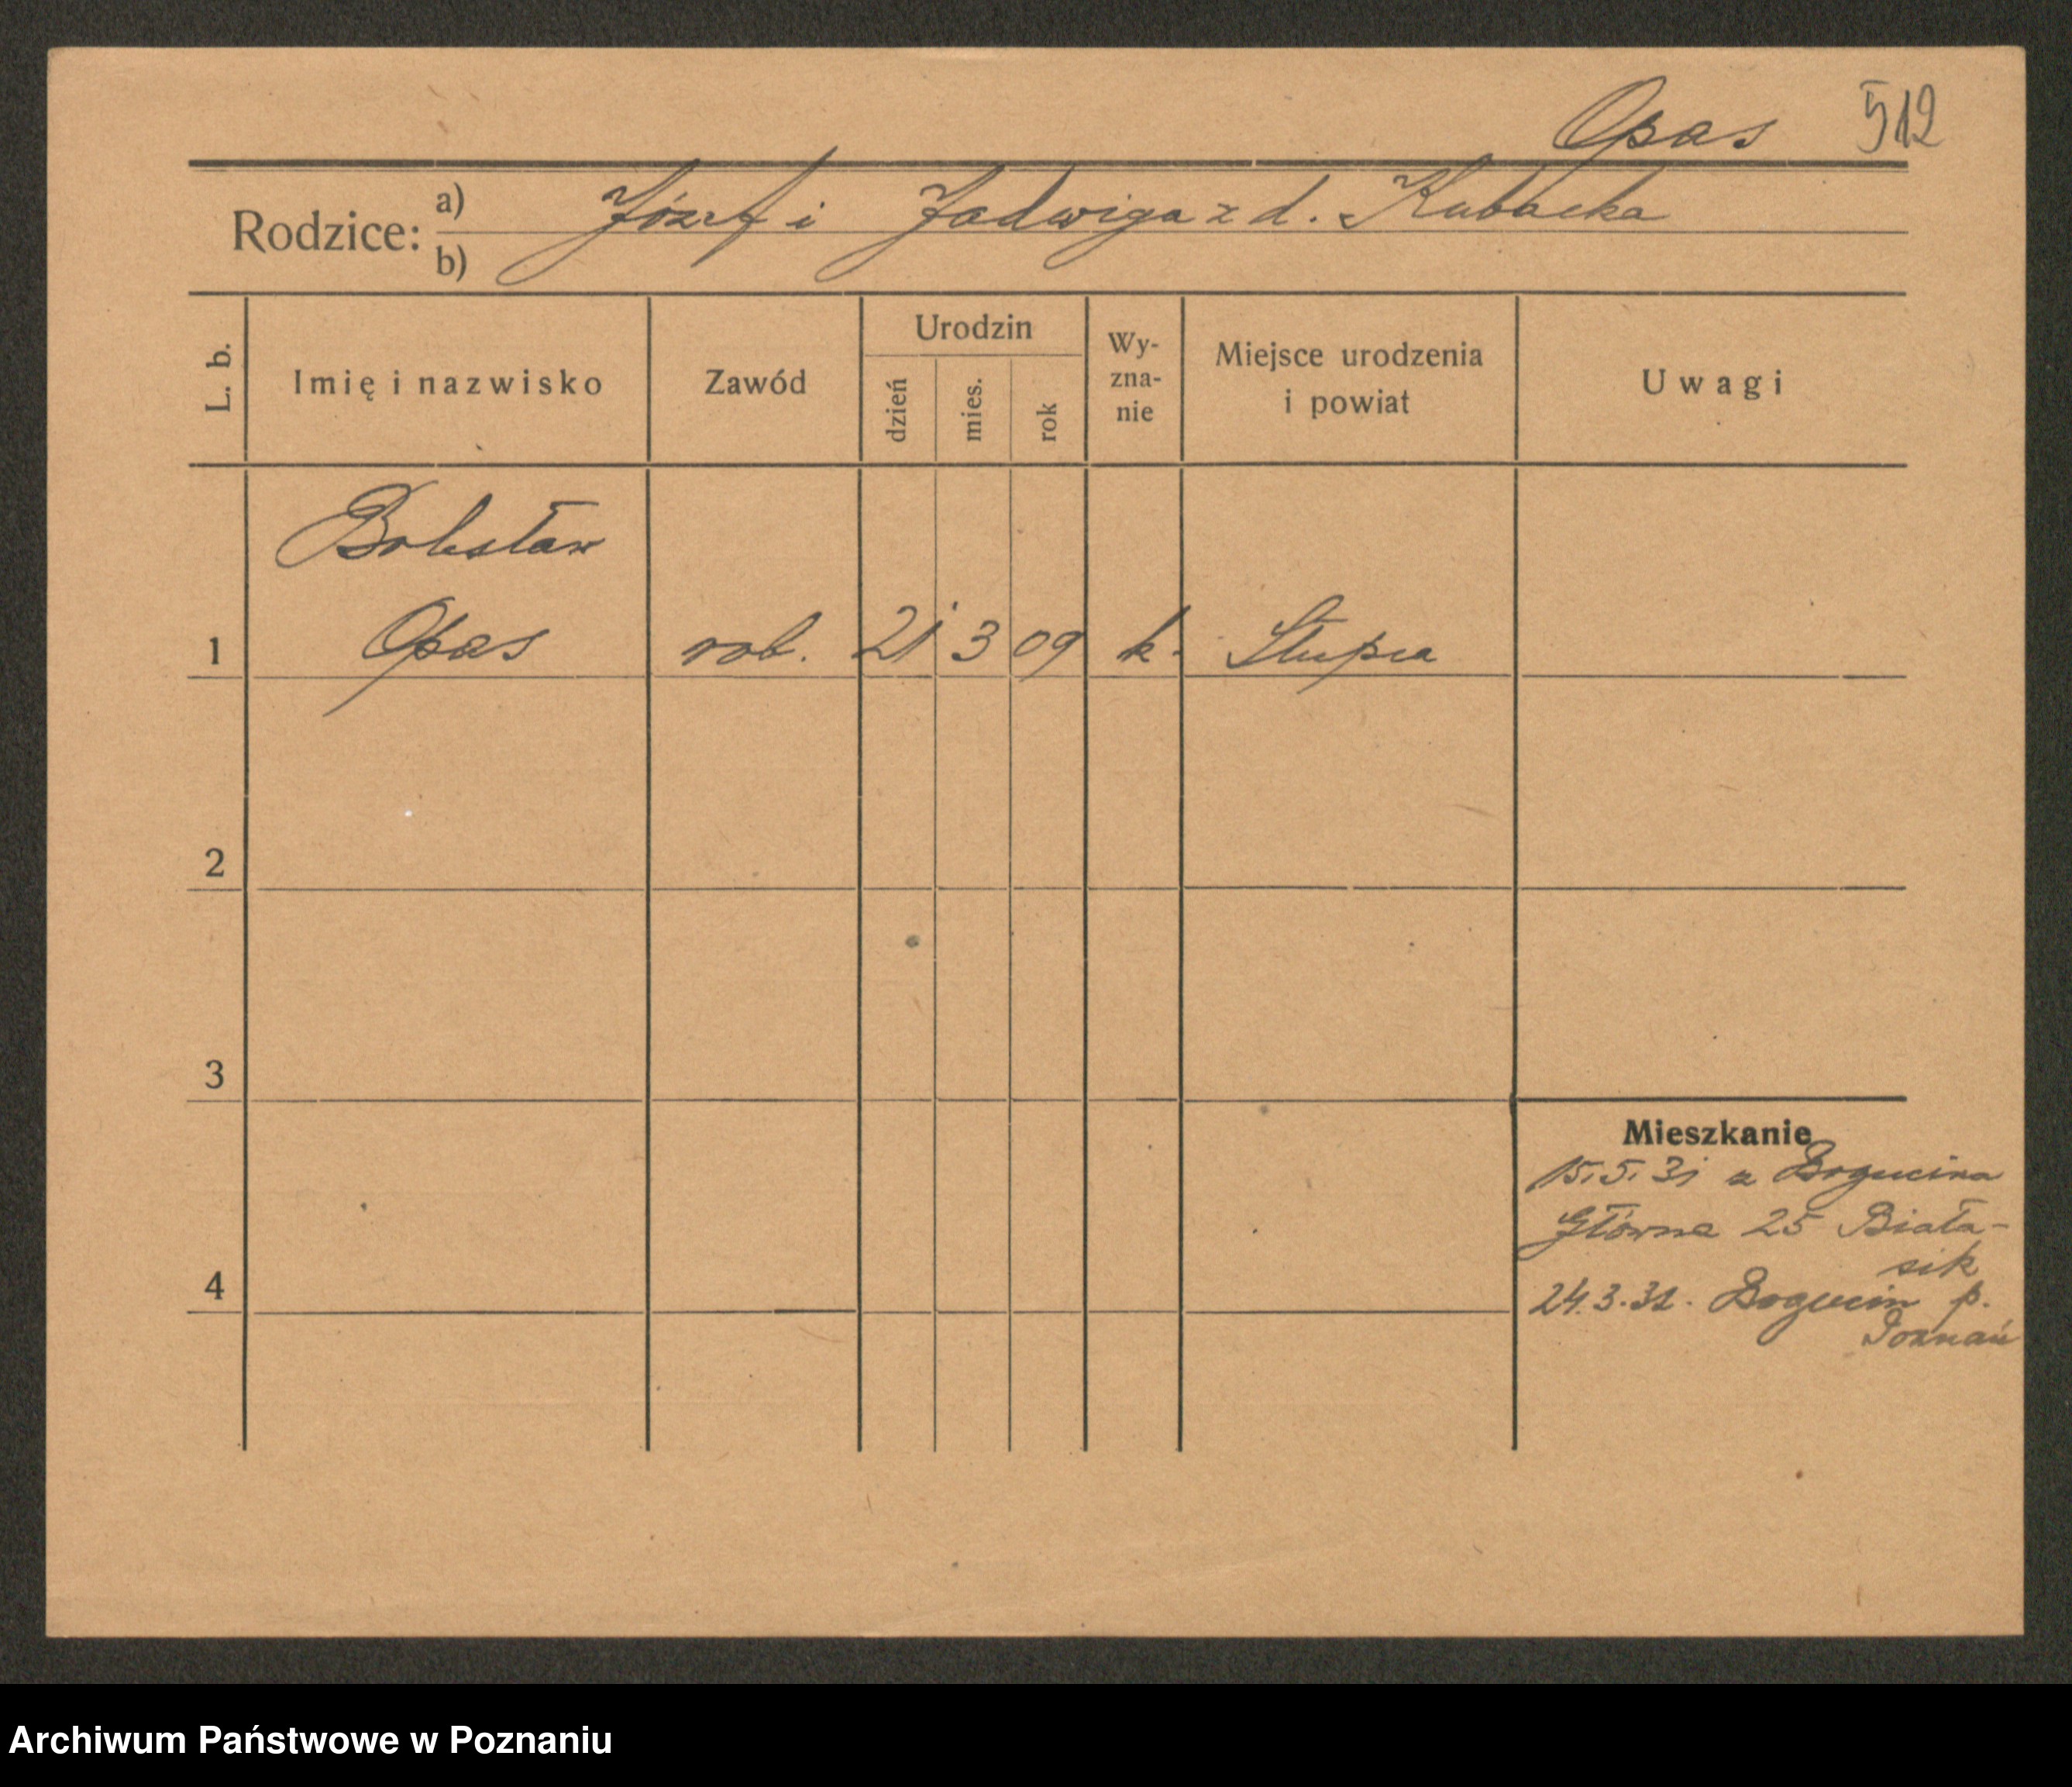 Opas 512
Rodzice: a) Józef i Jadwiga z d. Kubacka
b)
L. b. Imię i nazwisko Zawód Urodzin dzień mies. rok Wy-zna-nie Miejsce urodzenia i powiat Uwagi
Bolesław
1 Opas rob. 21 3 09 k. Słupca
2
3
Mieszkanie
15.5.31 z Bogucina
Główna 25 Biała-
sik
4
24.3.32. Bogucin p.
Poznań
Archiwum Państwowe w Poznaniu